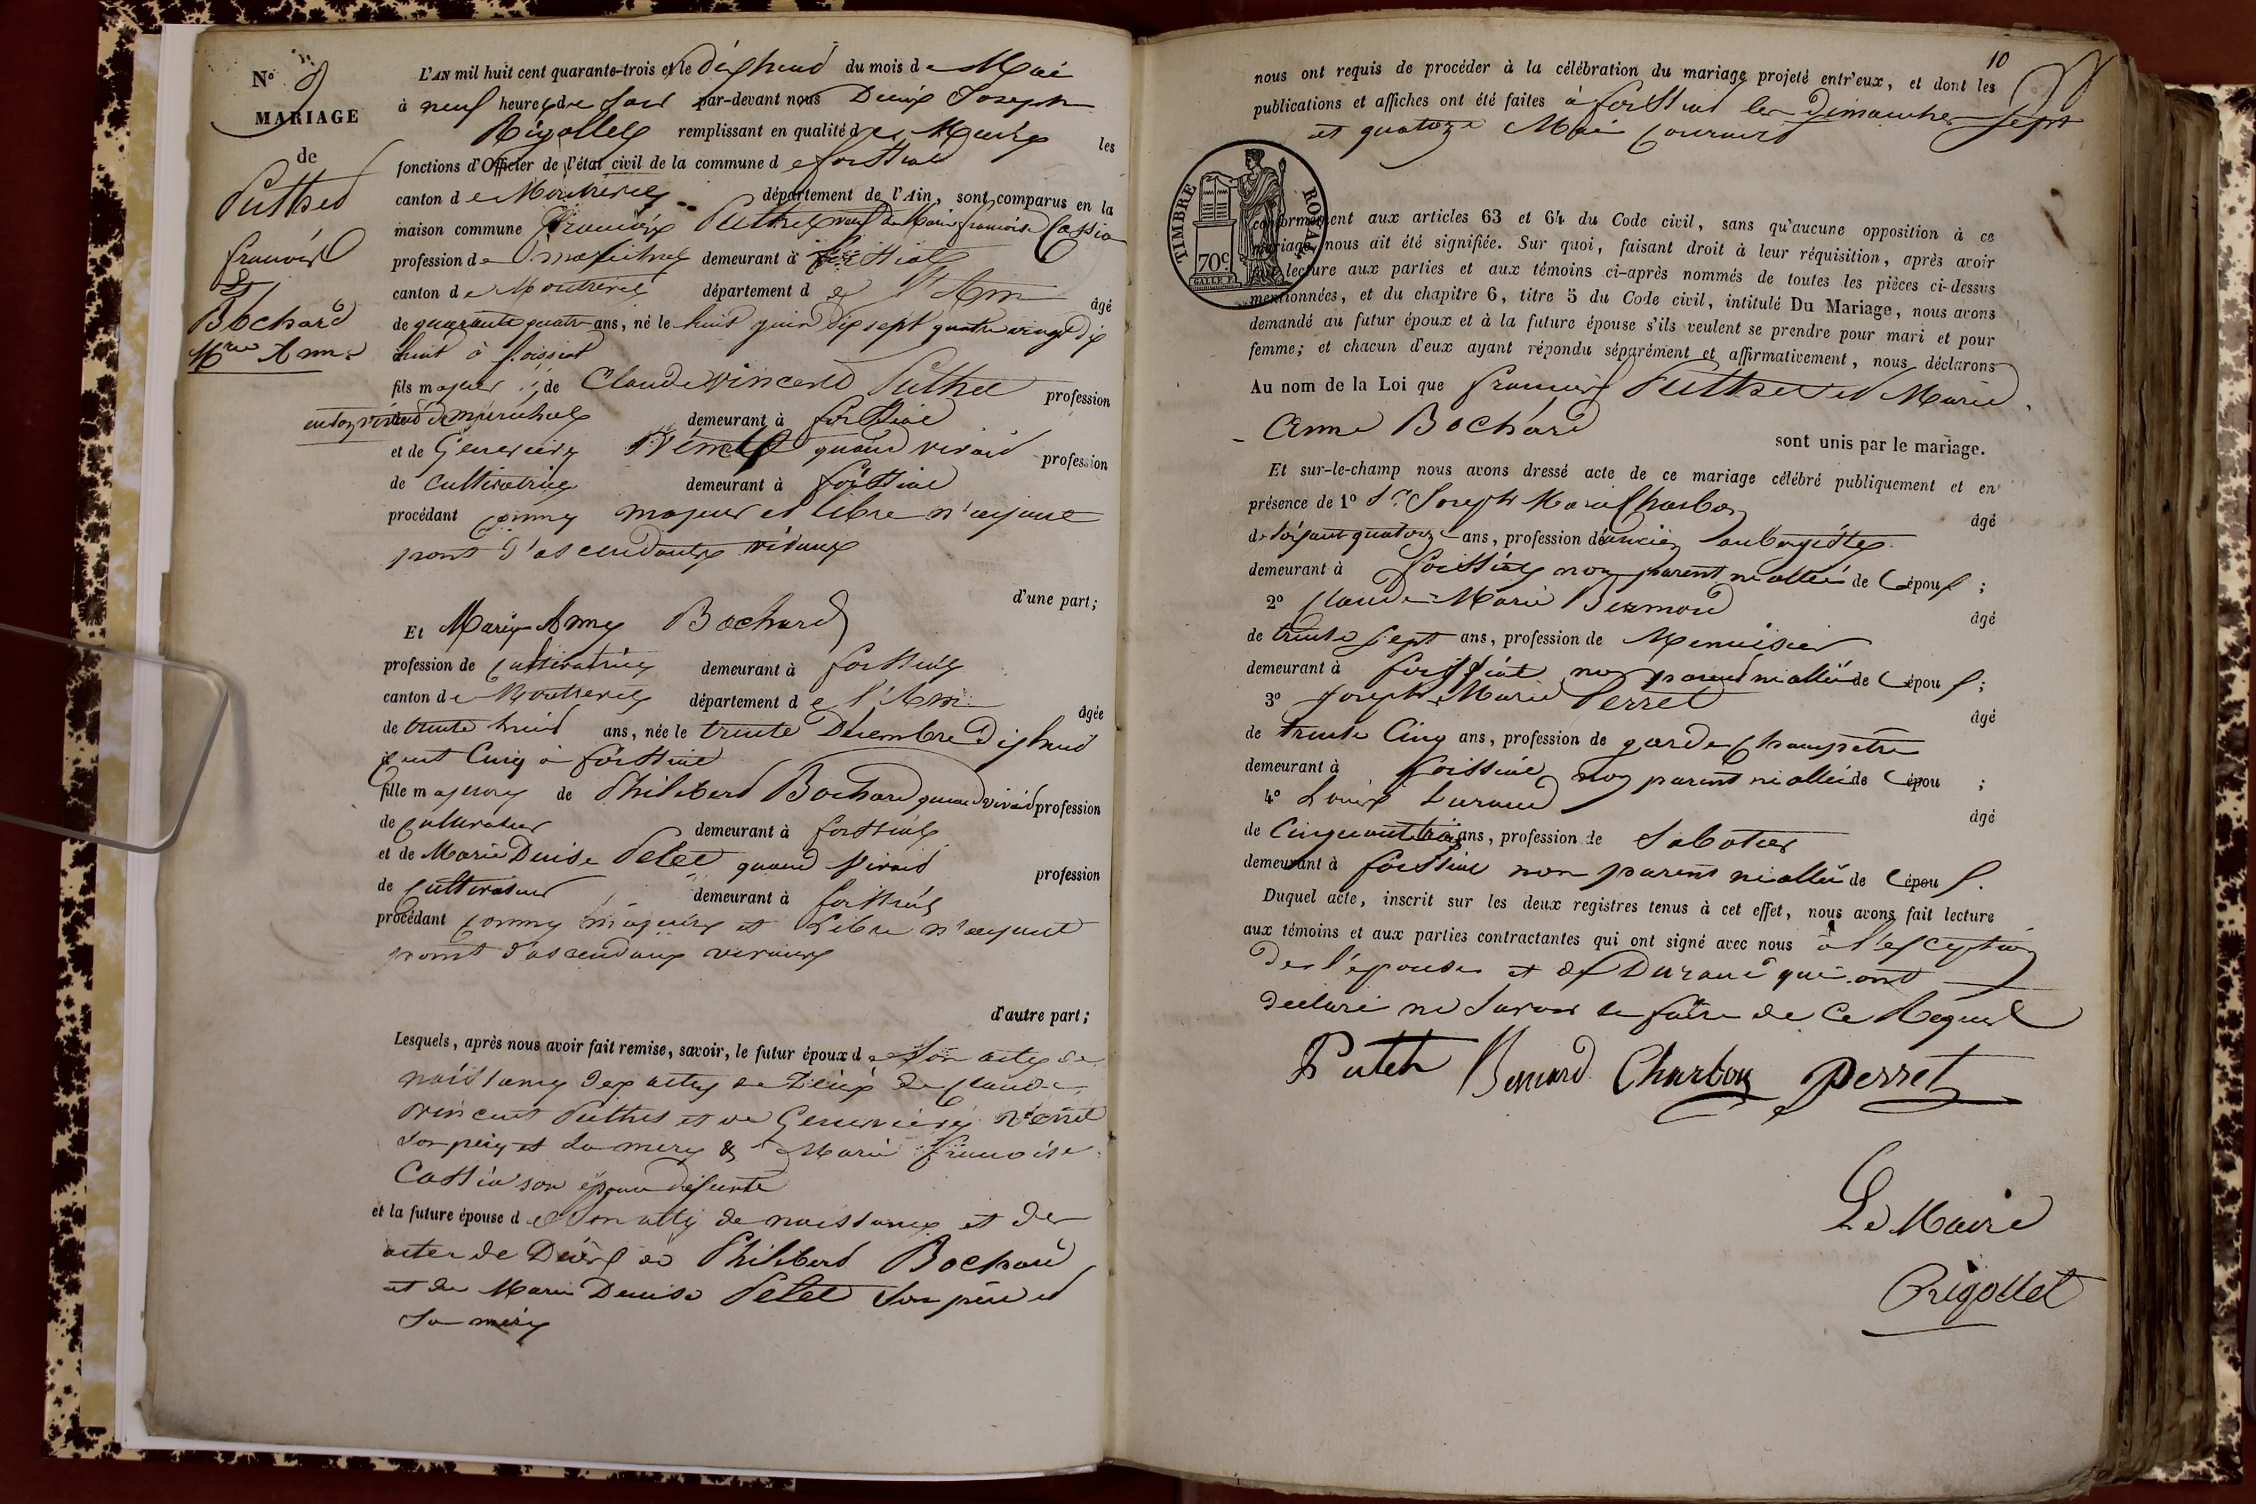 N° 8
MARIAGE
de
Puthet
françois
&
Bochard
Mrie Anne
L'AN mil huit cent quarante-trois et le dix huit du mois de Mai
à neuf heures du soir par-devant nous Denis Joseph
Rigollet remplissant en qualité de Maire les
fonctions d'Officier de l'état civil de la commune de foissiat
canton de Montrevel département de l'Ain, sont comparus en la
maison commune françois Puthet veuf de Marie françoise Cassia
profession de maréchal demeurant à foissiat
canton de Montrevel département de l'Ain âgé
de quarante quatre ans, né le huit juin dix sept quatre vingt dix
huit à foissiat
fils majeur de Claude vincent Puthet profession
quand vivait de maréchal demeurant à foissiat
et de Genevieve quand vivait profession
de cultivatrice demeurant à foissiat
procédant comme majeur et libre n'ayant
point d'ascendants vivants
d'une part;
Et Marie Anne Bochard
profession de cultivatrice demeurant à foissiat
canton de Montrevel département de l'Ain âgée
de trente huit ans, née le trente Décembre dix huit
cent Cinq à foissiat
fille majeure de Philibert Bochard quand vivait profession
de cultivateur demeurant à foissiat
et de Marie Denise Pelet quand vivait profession
de cultivateur demeurant à foissiat
procédant comme majeure et Libre n'ayant
point d'ascendants vivants
d'autre part;
Lesquels, après nous avoir fait remise, savoir, le futur époux de son acte de
naissance des actes de Décès de Claude
vincent Puthet et de Genevieve
son père et sa mère & Marie françoise
Cassia son épouse défunte
et la future épouse de son acte de naissance et des
actes de Décès de Philibert Bochard
et de Marie Denise Pelet son père et
sa mère
10
nous ont requis de procéder à la célébration du mariage projeté entr'eux, et dont les
publications et affiches ont été faites à foissiat les dimanches sept
et quatorze Mai courant
TIMBRE ROYAL
70c
conformément aux articles 63 et 64 du Code civil, sans qu'aucune opposition à ce
mariage nous ait été signifiée. Sur quoi, faisant droit à leur réquisition, après avoir
lecture aux parties et aux témoins ci-après nommés de toutes les pièces ci-dessus
mentionnées, et du chapitre 6, titre 5 du Code civil, intitulé Du Mariage, nous avons
demandé au futur époux et à la future épouse s'ils veulent se prendre pour mari et pour
femme; et chacun d'eux ayant répondu séparément et affirmativement, nous déclarons
Au nom de la Loi que françois Puthet et Marie
Anne Bochard
sont unis par le mariage.
Et sur-le-champ nous avons dressé acte de ce mariage célébré publiquement et en
présence de 1° Sr Joseph Marie Charbon âgé
de soixante quatorze ans, profession d'ancien aubergiste
demeurant à foissiat non parent ni allié des épou s;
2° Claude Marie Bernard âgé
de trente sept ans, profession de Menuisier
demeurant à foissiat non parent ni allié des épou s;
3° Joseph Marie Perret âgé
de trente Cinq ans, profession de garde Champêtre
demeurant à foissiat non parent ni allié des épou ;
4° Louis Durand âgé
de Cinquante trois ans, profession de Sabotier
demeurant à foissiat non parent ni allié des épou s.
Duquel acte, inscrit sur les deux registres tenus à cet effet, nous avons fait lecture
aux témoins et aux parties contractantes qui ont signé avec nous à l'exception
de l'épouse et de Durand qui ont
declaré ne savoir le faire de ce Requis
Puteh Bernard Charbon Perret
Le Maire
Rigollet